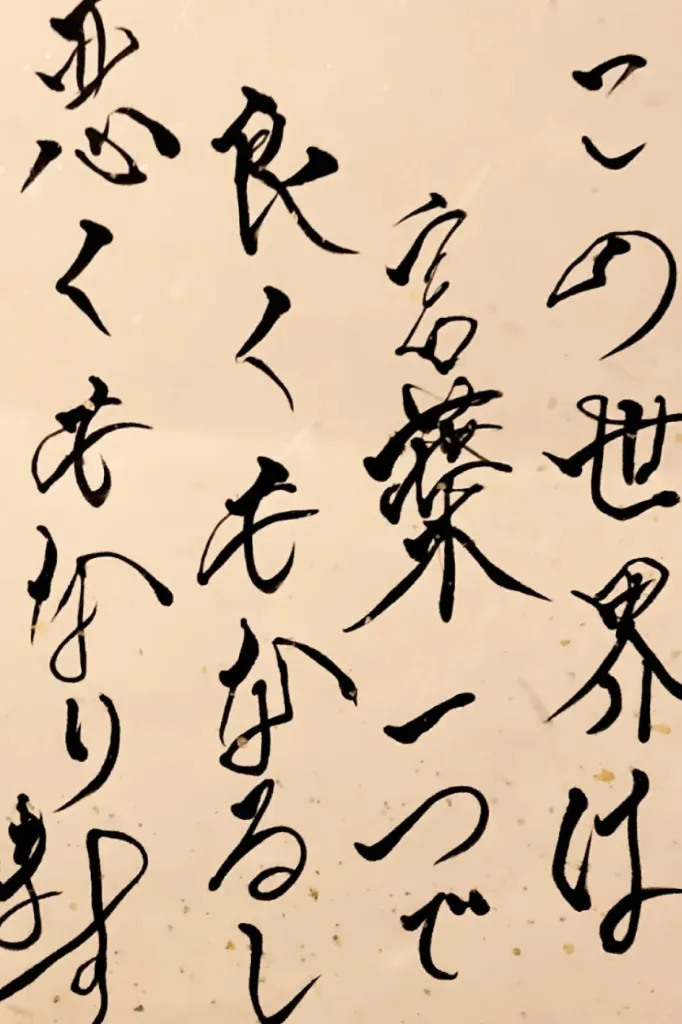 この世界は
言葉一つで
良くもなるし
悪くもなります